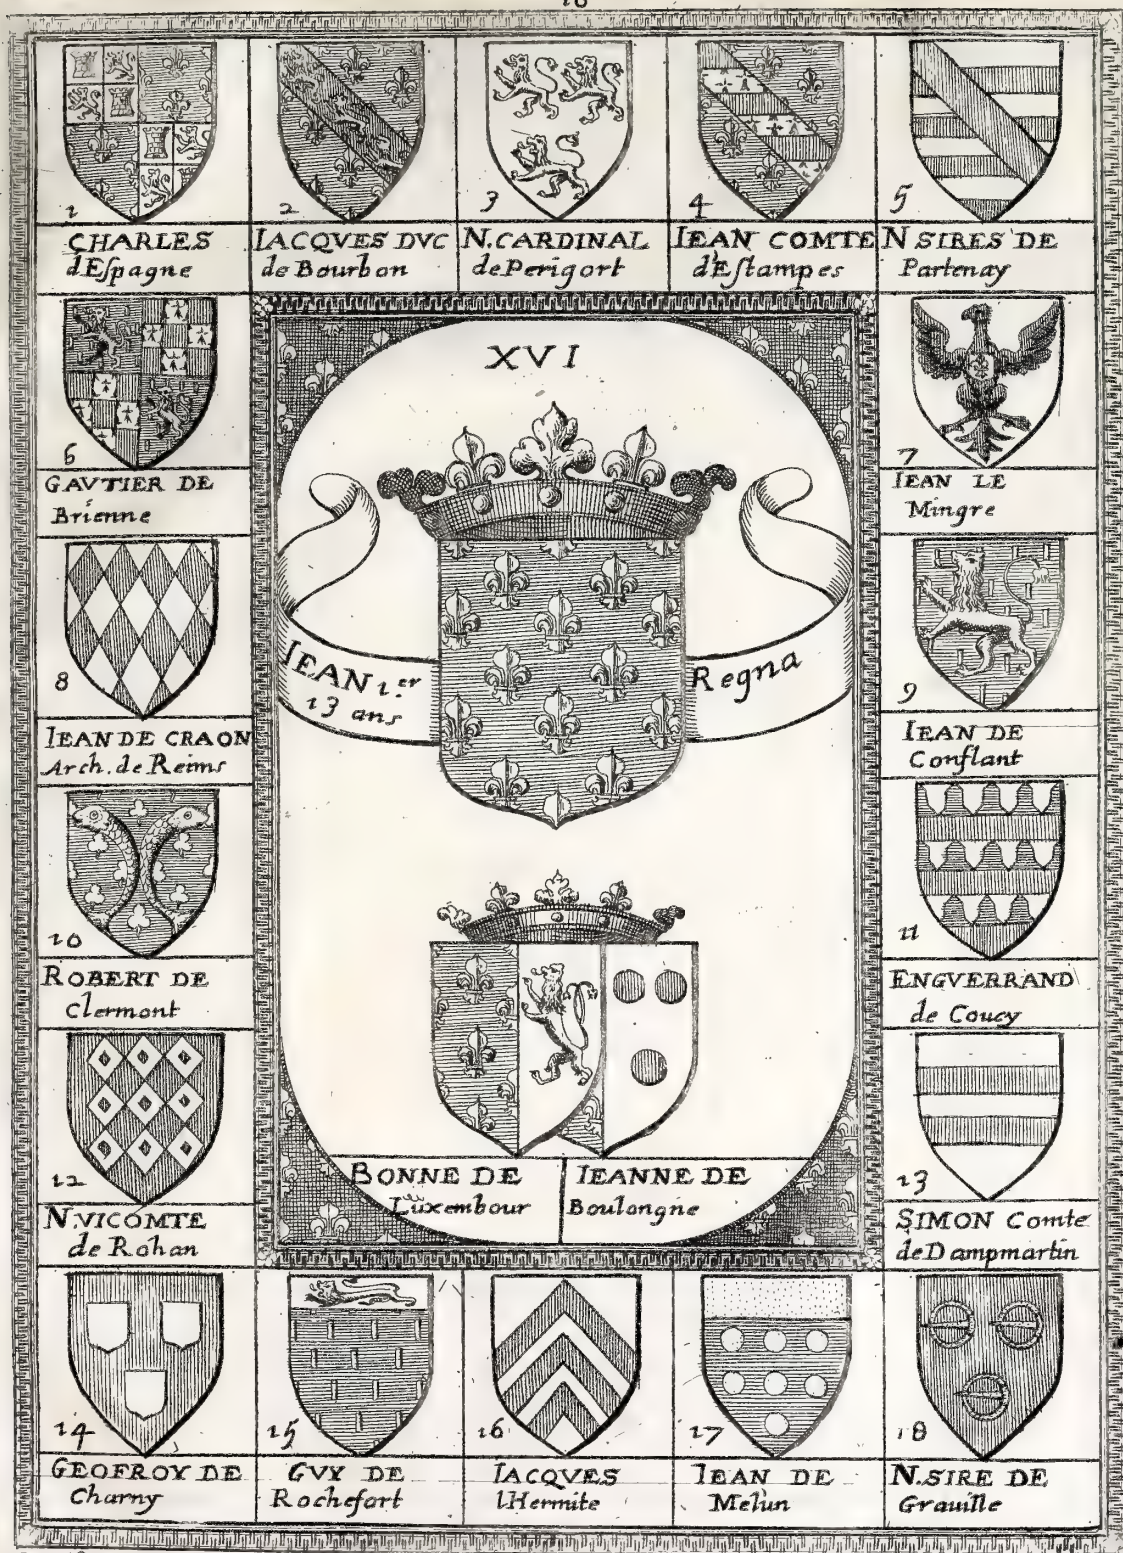 18
1
CHARLES
d'Espagne
2
IACQVES DVC
de Bourbon
3
N. CARDINAL
de Perigort
4
IEAN COMTE
d'Estampes
5
N SIRES DE
Partenay
6
GAVTIER DE
Brienne
XVI
7
IEAN LE
Mingre
IEAN 1.er
13 ans
Regna
8
IEAN DE CRAON
Arch. de Reims
9
IEAN DE
Conflant
10
ROBERT DE
Clermont
11
ENGVERRAND
de Coucy
12
N. VICOMTE
de Rohan
BONNE DE
Luxembour
IEANNE DE
Boulongne
13
SIMON Comte
de Dampmartin
14
GEOFROY DE
Charny
15
GVY DE
Rochefort
16
IACQVES
lHermite
17
IEAN DE
Melun
18
N. SIRE DE
Grauille